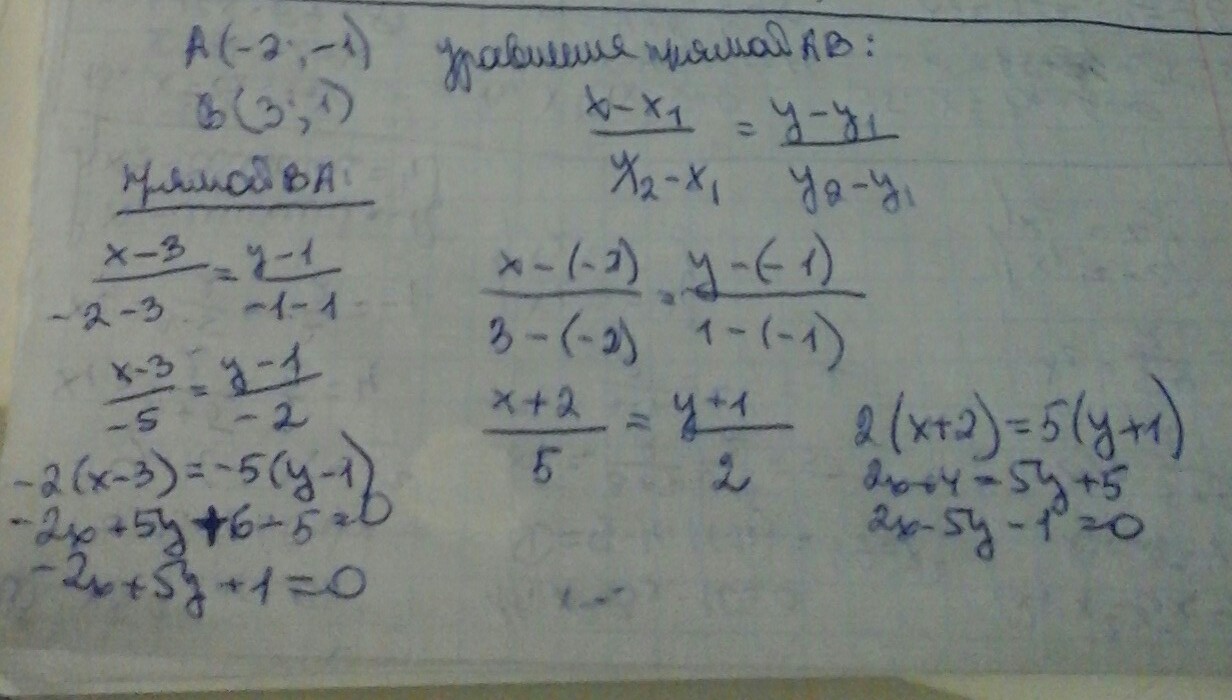 A(-2; -1)
B(3; 1)
прямой BA:
x-3/-2-3 = y-1/-1-1
x-3/-5 = y-1/-2
-2(x-3)=-5(y-1)
-2x+5y+6-5=0
-2x+5y+1=0
уравнения прямой AB:
x-x1/x2-x1 = y-y1/y2-y1
x-(-2)/3-(-2) = y-(-1)/1-(-1)
x+2/5 = y+1/2
2(x+2)=5(y+1)
2x+4=5y+5
2x-5y-1=0